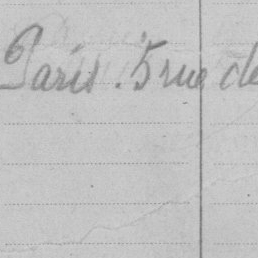 Paris. 5 rue de